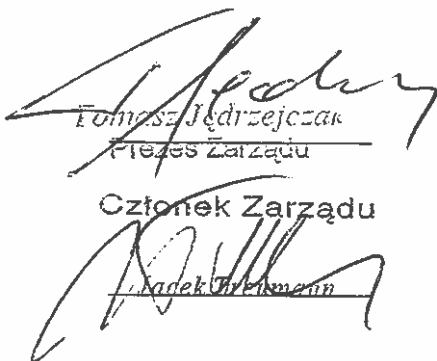 Tomasz Jędrzejczak
Prezes Zarządu
Członek Zarządu
Jacek